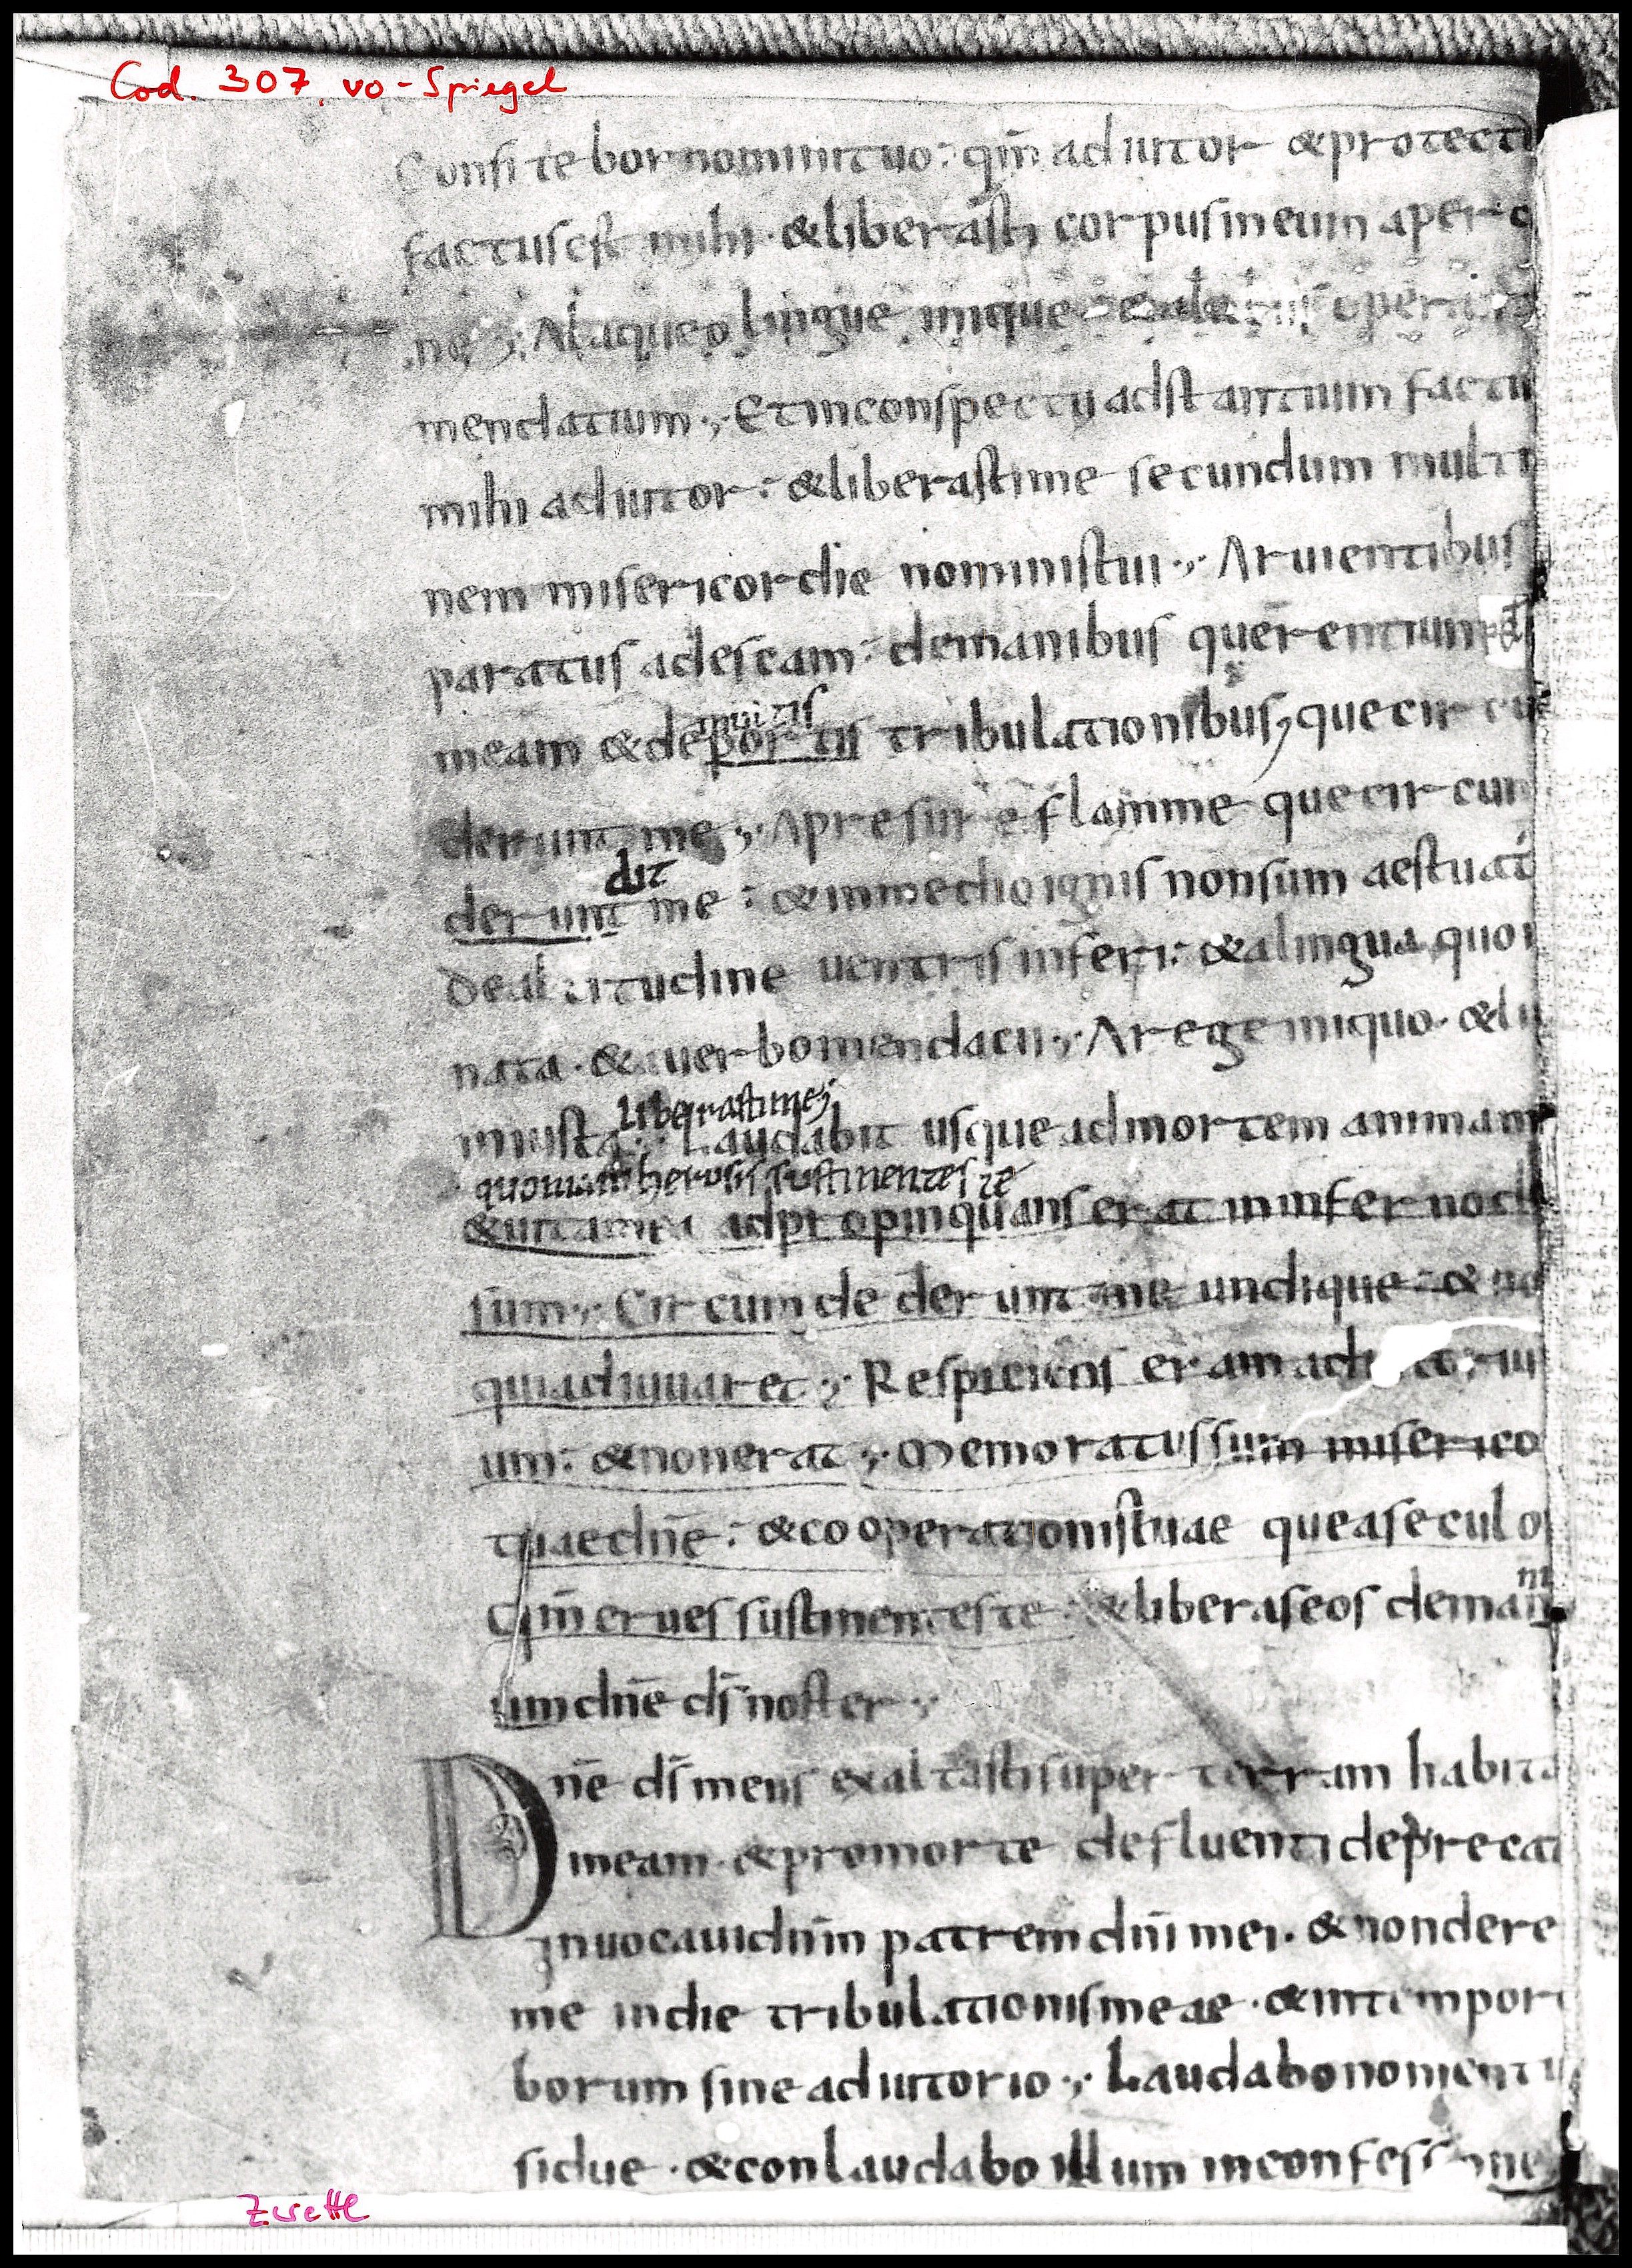 Cod. 307, vo-Spiegel
Confitebor nomini tuo: qm̄ adiutor & protect
factus est mihi · & liberasti corpus meum aper
ne ; A laqueo lingue inique operan
mendatium ·,· Et in conspectu adstantium factu
mihi adiutor : & liberasti me secundum multi
nem misericordie nominis tui ·,· A rugientibus
paratus ad escam : de manibus querentium
meam & de portis tribulationibus, que circu
derunt me ·,· A presure flamme que circum
dit
derunt me : & in medio ignis non sum aestuat
De altitudine ventris inferi : & a lingua quoi
nata · & a uerbo mendacii ·,· A rege iniquo · & li
liberasti me;
iniusta ·,· Laudabit usque ad mortem animam
quoniam sustinentes te
& uita mea adpropinquans erat in inferno d
sum ·,· Circumdederunt me undique : & no
qui adiuuaret ·,· Respiciens eram ad
um : & non erat ·,· Memoratus sum miserico
tuae dn̄e : & cooperationis tuae que a seculo
Qm̄ erues sustinentes te : & liberas eos de man
um dn̄e ds̄ noster ·,·
Dn̄e ds̄ meus exaltasti super terram habita
meam · & pro morte defluenti deprecat
inuocaui dn̄m patrem dn̄i mei · & non dere
me in die tribulationis meae · & in tempor
borum sine adiutorio ·,· Laudabo nomen tu
sidue · & conlaudabo illum in confessione
Zwettl